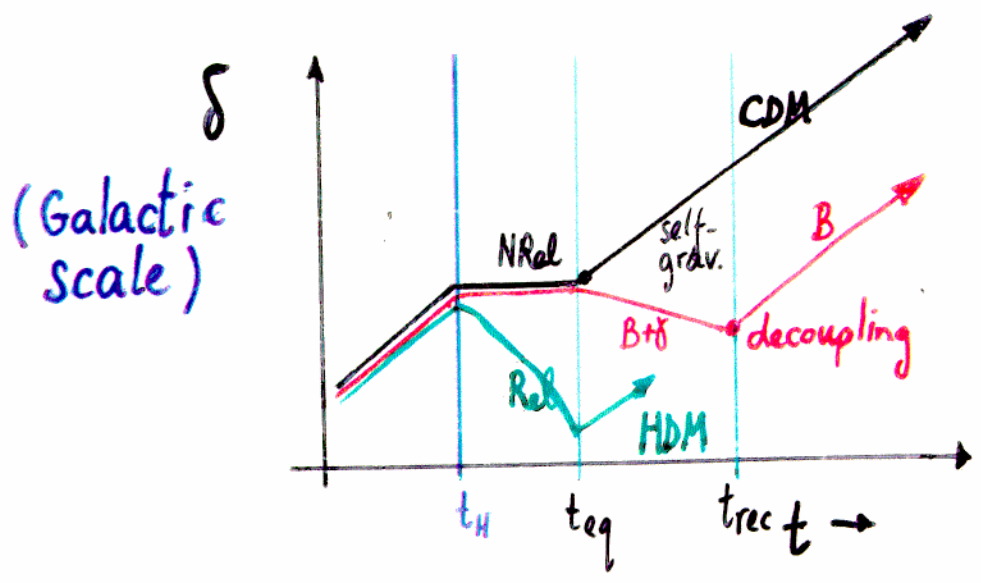 δ
(Galactic
scale)
CDM
self-
grav.
NRel
B
B+γ
decoupling
Rel
HDM
t_H
t_eq
t_rec
t →